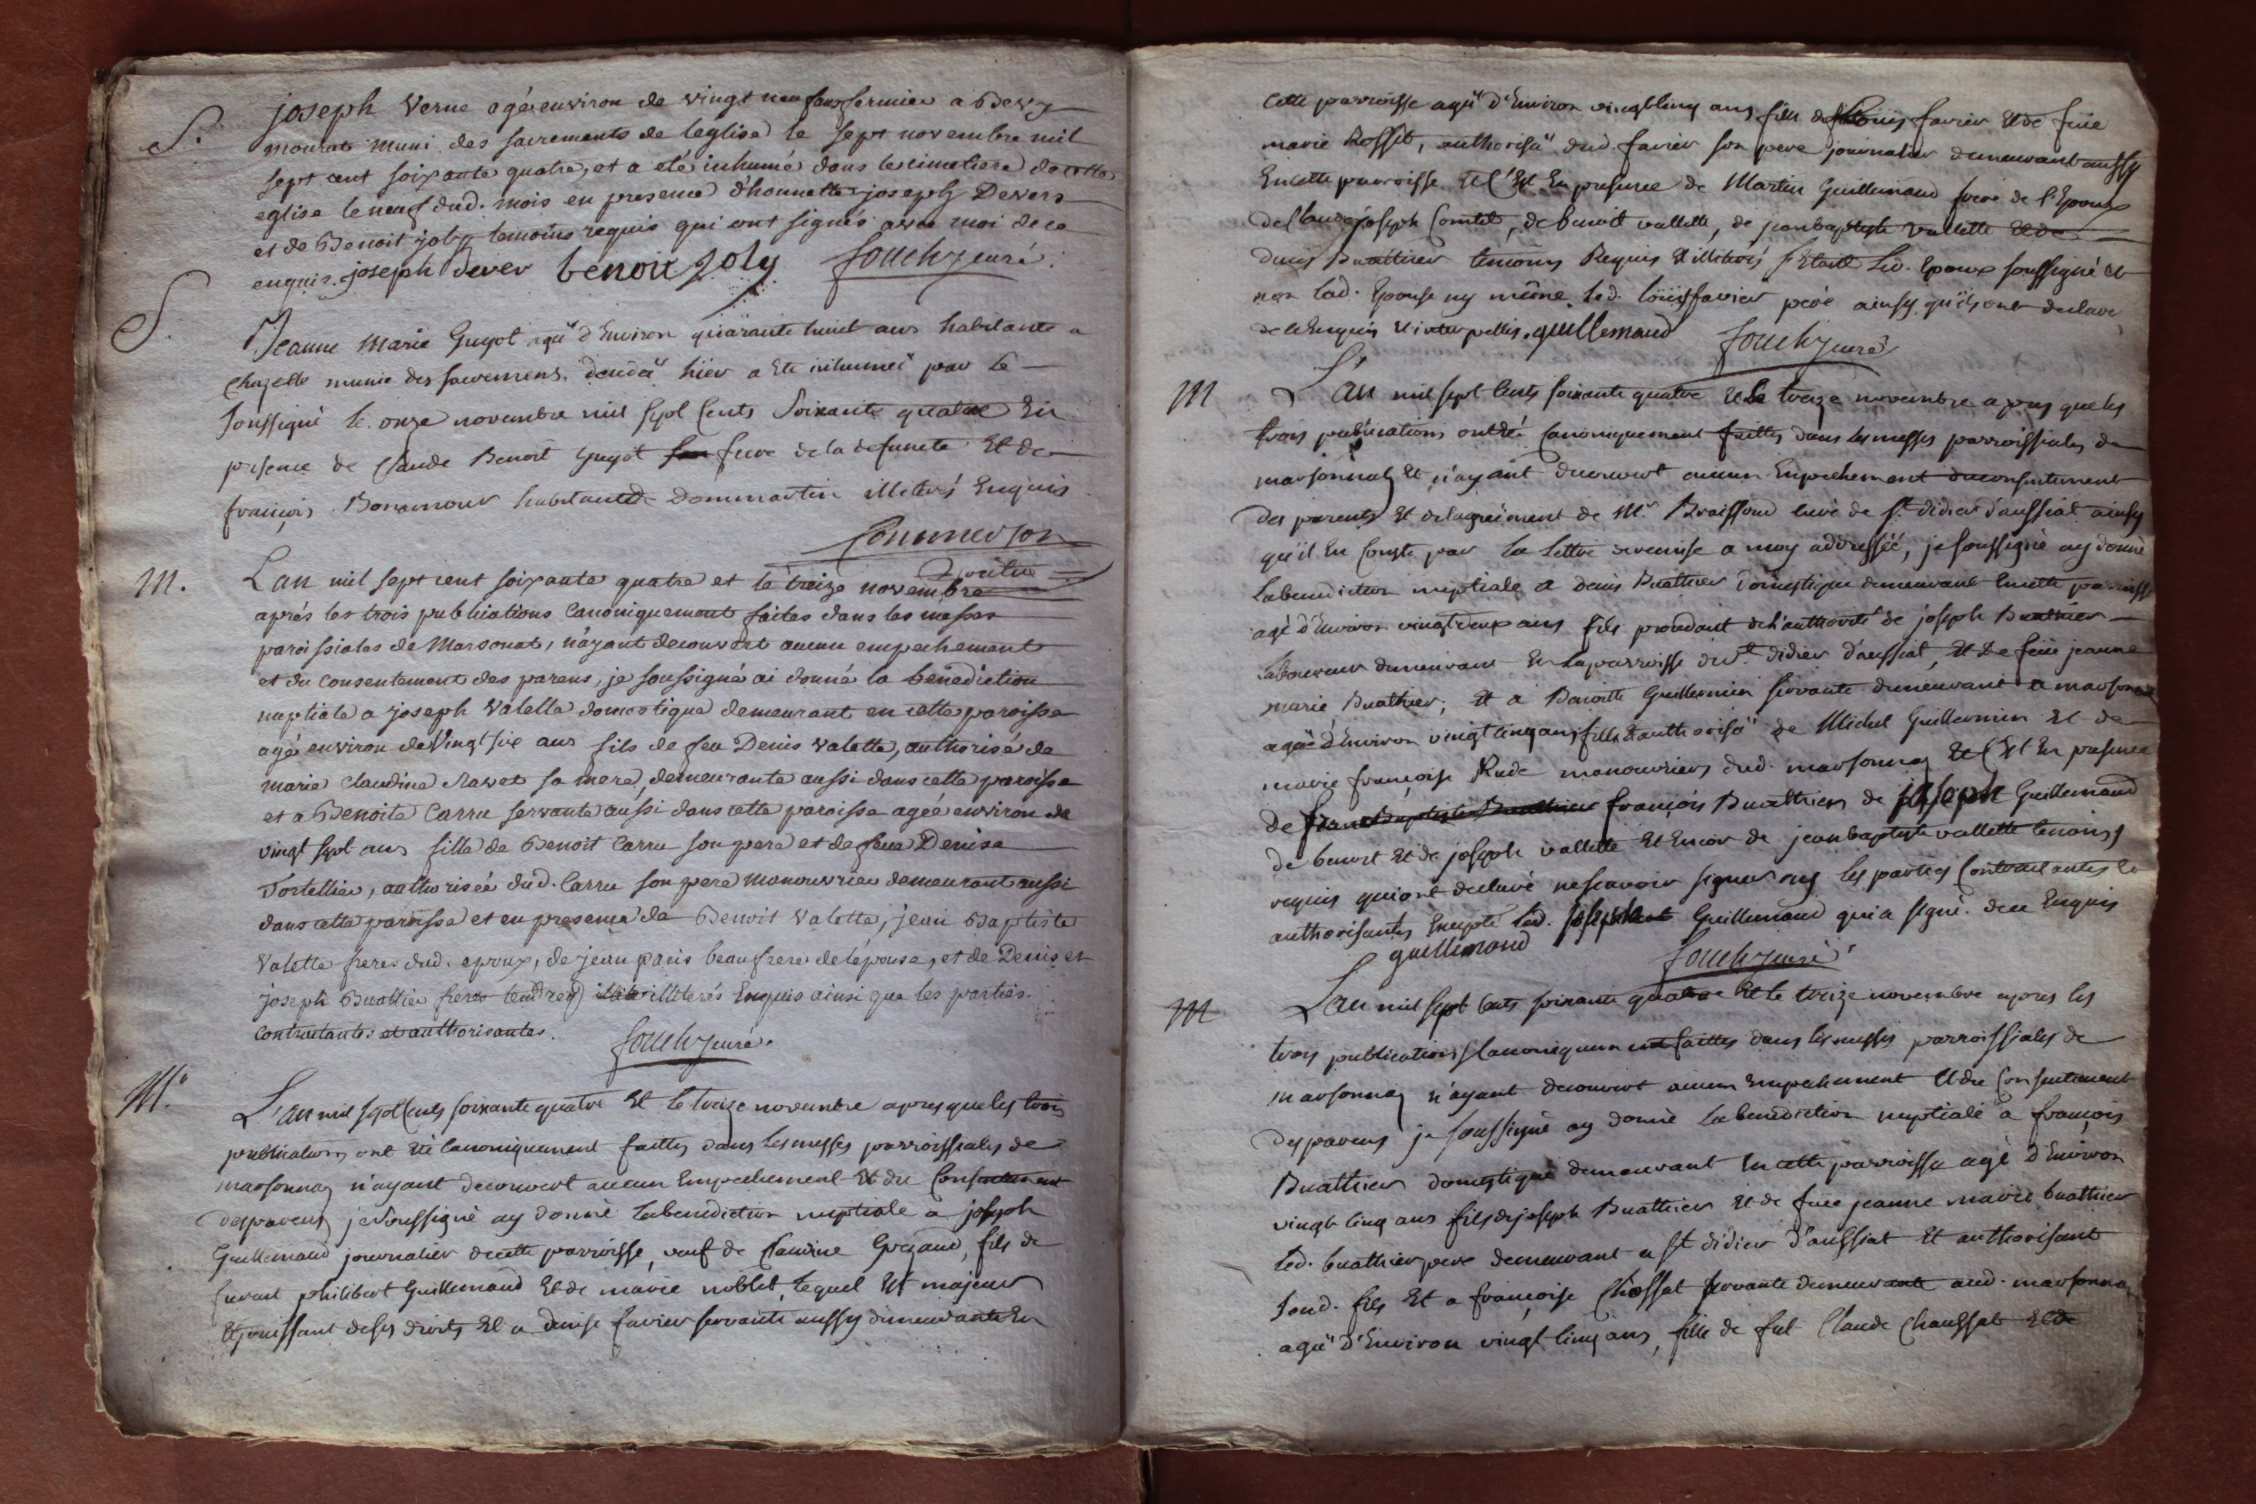 S. joseph Verne agé environ de vingt neuf ans fermier a Devy
mourut muni des sacrements de leglise le sept novembre mil
sept cent soixante quatre, et a eté inhumé dans le cimetiere de cette
eglise le neuf dud. mois en presence d'honnette joseph Devers
et de Benoit joly temoins requis qui ont signés avec moi de ce
enquis. joseph dever benoit joly fouchy curé.
S. Jeanne Marie Guyot agée d'Environ quarante huit ans habitante a
Chazelle munie des sacremens. decedée hier a ete inhumée par le
soussigné le onze novembre mil sept Cents Soixante quatre En
presence de Claude Benoit Guyot frere de la defuncte Et de
francois Bonamour habitants de Dommartin illiterés Enquis
Commerson
vicaire
M. Lan mil sept cent soixante quatre et le treize novembre
aprés les trois publications Canoniquement faites dans les messes
paroissiales de Marsonat, n'ayant decouvert aucun empechement
et du consentement des parens, je soussigné ai donné la bénédiction
nuptiale a joseph Valette domestique demeurant en cette paroisse
agé environ de Vingt six ans fils de feu Denis Valette, authorisé de
marie Claudine Ravet sa mere, demeurante aussi dans cette paroisse
et a Benoite Carru servante aussi dans cette paroisse agée environ de
vingt sept ans fille de Benoit Carru son pere et de feue Denise
Tortellier, authorisée dud. Carru son pere manouvrier demeurant aussi
dans cette paroisse et en presence de Benoit Valette, jean Baptiste
Valette freres dud. epoux, de jean paris beaufrere de lépouse, et de Denis et
joseph Buathier freres illiterés Enquis ainsi que les parties
contractantes et authorisantes. fouchy curé.
M. L'an mil sept Cents soixante quatre Et le treize novembre apres que les trois
publications ont été Canoniquement faittes dans les messes parroissiales de
marsonnay n'ayant decouvert aucun Empechement Et du Consentement
des parens je soussigné ay donné la benediction nuptiale a joseph
Guillemaud journalier de cette parroisse, veuf de Claudine, fils de
philibert Guillemaud Et de marie noblet, lequel Est majeur
Et jouissant de ses droits Et a denise favier servante aussy demeurante En
cette parroisse agée d'Environ vingt cinq ans, fille de Louis favier Et de feüe
marie Rosset, authorisée dud. favier son pere journalier demeurant aussy
En cette parroisse Et C'Est En presence de Martin Guillemaud frere de l'Epoux
de Claude joseph Comtet, de benoit vallette, de jean baptiste vallette Et de
denis Buathier temoins Requis Et illiterés Led. Epoux soussigné Et
non lad. Epouse ny même led. loüis favier pere ainsy qu'ils ont declaré
de ce Enquis Et interpellés. guillemaud fouchy curé
M L'an mil sept Cents soixante quatre Et le treize novembre apres que les
trois publications ont été Canoniquement faittes dans les messes parroissiales de
marsonnay Et n'ayant decouvert aucun Empechement du consentement
des parents Et de l'agrément de Mr. Braissoud curé de St. didier d'aussiat ainsy
qu'il En Conste par la lettre de remise a moy addressée, je soussigné ay donné
la benediction nuptiale a denis Buathier domestique demeurant En cette parroisse
agé d'Environ vingt deux ans fils procedant de l'authorité de joseph Buathier
laboureur demeurant En la parroisse de St. didier d'aussiat, Et de feüe jeanne
marie Buathier, Et a Benoitte Guillermin servante demeurant a marsonnay
agée d'Environ vingt cinq ans fille Et authorisée de Michel Guillermin Et de
marie françoise Rude manouvriers dud. marsonnay Et C'Est En presence
de françois Buathier, de joseph Guillemaud
de benoit Et de joseph vallette Et Encor de jean baptiste vallette temoins
requis qui ont declaré ne scavoir signer ny les parties Contractantes Et
authorisantes Excepté led. joseph Guillemaud qui a signé. de ce Enquis
guillemaud fouchy curé
M L'an mil sept Cents soixante quatre Et le treize novembre apres les
trois publications Canoniquement faittes dans les messes parroissiales de
marsonnay n'ayant decouvert aucun Empechement Et du Consentement
des parens je soussigné ay donné la benediction nuptiale a françois
Buathier domestique demeurant En cette parroisse agé d'Environ
vingt cinq ans fils de joseph Buathier Et de feüe jeanne marie buathier
led. buathier pere demeurant a St didier d'aussiat Et authorisant
sond. fils Et a françoise Chossat servante demeurante aud. marsonnay
agée d'Environ vingt cinq ans, fille de feû Claude Chaussat Et de